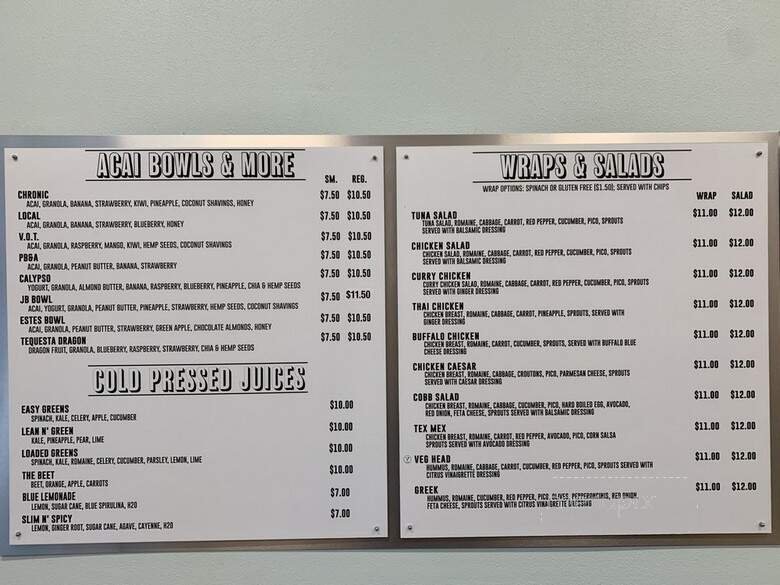 ACAI BOWLS & MORE
SM. REG.
CHRONIC $7.50 $10.50
ACAI, GRANOLA, BANANA, STRAWBERRY, KIWI, PINEAPPLE, COCONUT SHAVINGS, HONEY
LOCAL $7.50 $10.50
ACAI, GRANOLA, BANANA, STRAWBERRY, BLUEBERRY, HONEY
V.O.T. $7.50 $10.50
ACAI, GRANOLA, RASPBERRY, MANGO, KIWI, HEMP SEEDS, COCONUT SHAVINGS
PB&A $7.50 $10.50
ACAI, GRANOLA, PEANUT BUTTER, BANANA, STRAWBERRY
CALYPSO $7.50 $10.50
YOGURT, GRANOLA, ALMOND BUTTER, BANANA, RASPBERRY, BLUEBERRY, PINEAPPLE, CHIA & HEMP SEEDS
JB BOWL $7.50 $11.50
ACAI, YOGURT, GRANOLA, PEANUT BUTTER, PINEAPPLE, STRAWBERRY, HEMP SEEDS, COCONUT SHAVINGS
ESTES BOWL $7.50 $10.50
ACAI, GRANOLA, PEANUT BUTTER, STRAWBERRY, GREEN APPLE, CHOCOLATE ALMONDS, HONEY
TEQUESTA DRAGON $7.50 $10.50
DRAGON FRUIT, GRANOLA, BLUEBERRY, RASPBERRY, STRAWBERRY, CHIA & HEMP SEEDS
COLD PRESSED JUICES
EASY GREENS $10.00
SPINACH, KALE, CELERY, APPLE, CUCUMBER
LEAN N' GREEN $10.00
KALE, PINEAPPLE, PEAR, LIME
LOADED GREENS $10.00
SPINACH, KALE, ROMAINE, CELERY, CUCUMBER, PARSLEY, LEMON, LIME
THE BEET $10.00
BEET, ORANGE, APPLE, CARROTS
BLUE LEMONADE $7.00
LEMON, SUGAR CANE, BLUE SPIRULINA, H2O
SLIM N' SPICY $7.00
LEMON, GINGER ROOT, SUGAR CANE, AGAVE, CAYENNE, H2O
WRAPS & SALADS
WRAP OPTIONS: SPINACH OR GLUTEN FREE ($1.50); SERVED WITH CHIPS
WRAP SALAD
TUNA SALAD $11.00 $12.00
TUNA SALAD, ROMAINE, CABBAGE, CARROT, RED PEPPER, CUCUMBER, PICO, SPROUTS
SERVED WITH BALSAMIC DRESSING
CHICKEN SALAD $11.00 $12.00
CHICKEN SALAD, ROMAINE, CABBAGE, CARROT, RED PEPPER, CUCUMBER, PICO, SPROUTS
SERVED WITH BALSAMIC DRESSING
CURRY CHICKEN $11.00 $12.00
CURRY CHICKEN SALAD, ROMAINE, CABBAGE, CARROT, RED PEPPER, CUCUMBER, PICO, SPROUTS
SERVED WITH GINGER DRESSING
THAI CHICKEN $11.00 $12.00
CHICKEN BREAST, ROMAINE, CABBAGE, CARROT, PINEAPPLE, SPROUTS, SERVED WITH
GINGER DRESSING
BUFFALO CHICKEN $11.00 $12.00
CHICKEN BREAST, ROMAINE, CARROT, CUCUMBER, SPROUTS, SERVED WITH BUFFALO BLUE
CHEESE DRESSING
CHICKEN CAESAR $11.00 $12.00
CHICKEN BREAST, ROMAINE, CABBAGE, CROUTONS, PICO, PARMESAN CHEESE, SPROUTS
SERVED WITH CAESAR DRESSING
COBB SALAD $11.00 $12.00
CHICKEN BREAST, ROMAINE, CABBAGE, CUCUMBER, PICO, HARD BOILED EGG, AVOCADO,
RED ONION, FETA CHEESE, SPROUTS SERVED WITH BALSAMIC DRESSING
TEX MEX $11.00 $12.00
CHICKEN BREAST, ROMAINE, CARROT, RED PEPPER, AVOCADO, PICO, CORN SALSA
SPROUTS SERVED WITH AVOCADO DRESSING
VEG HEAD $11.00 $12.00
HUMMUS, ROMAINE, CABBAGE, CARROT, CUCUMBER, RED PEPPER, PICO, SPROUTS SERVED WITH
CITRUS VINAIGRETTE DRESSING
GREEK $11.00 $12.00
HUMMUS, ROMAINE, CUCUMBER, RED PEPPER, PICO, OLIVES, PEPPERONCINIS, RED ONION,
FETA CHEESE, SPROUTS SERVED WITH CITRUS VINAIGRETTE DRESSING